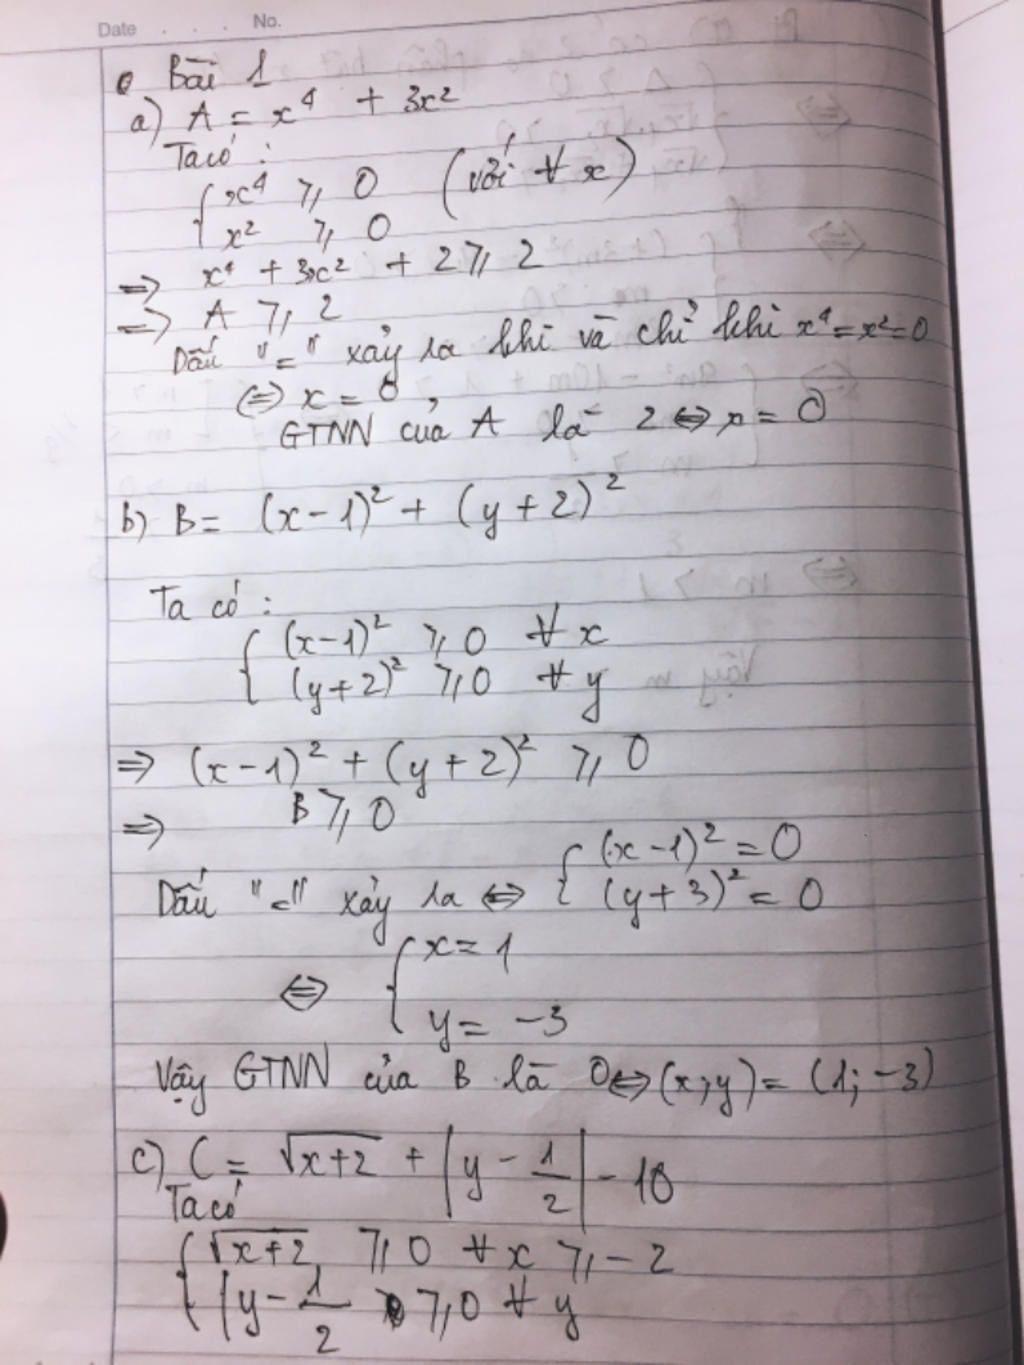 Date . . . No.
Bài 1
a) A = x⁴ + 3x²
Ta có :
{ x⁴ ⩾ 0 (với ∀ x)
{ x² ⩾ 0
=> x⁴ + 3x² + 2 ⩾ 2
=> A ⩾ 2
Dấu "=" xảy ra khi và chỉ khi x⁴ = x² = 0
<=> x = 0
GTNN của A là 2 <=> x = 0
b) B = (x-1)² + (y+2)²
Ta có :
{ (x-1)² ⩾ 0 ∀ x
{ (y+2)² ⩾ 0 ∀ y
=> (x-1)² + (y+2)² ⩾ 0
=> B ⩾ 0
Dấu "=" xảy ra <=> { (x-1)² = 0
{ (y+3)² = 0
<=> { x = 1
{ y = -3
Vậy GTNN của B là 0 <=> (x;y) = (1; -3)
c) C = √(x+2) + |y - 1/2| - 10
Ta có
{ √(x+2) ⩾ 0 ∀ x ⩾ -2
{ |y - 1/2 ⩾ 0 ∀ y